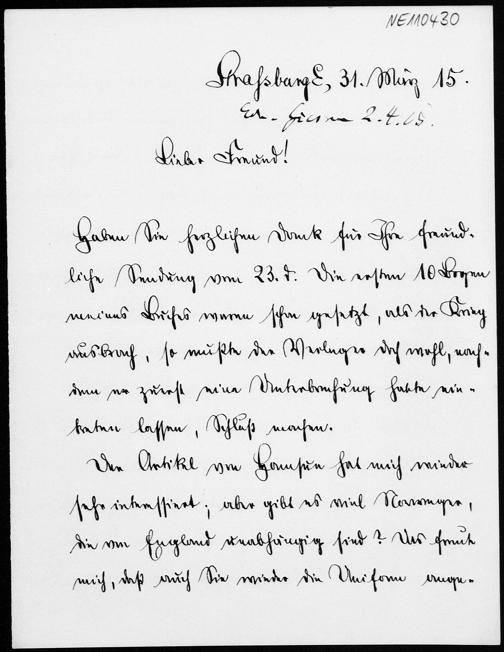 NE110430
Straßburg E, 31. März 15.
2.4.15.
Lieber Freund!
Haben Sie herzlichen Dank für Ihre freund-
liche Sendung vom 23. d. Die ersten 10 Bogen
meines Buches waren schon gesetzt, als der Krieg
ausbrach, so mußte der Verleger doch wohl, nach-
dem er zuerst eine Unterbrechung hatte ein-
treten lassen, Schluß machen.
Der Artikel von Hamsun hat mich wieder
sehr interessiert; aber gibt es viel Norweger,
die von England unabhängig sind? Uns freut
mich, daß auch Sie wieder die Uniform ange-